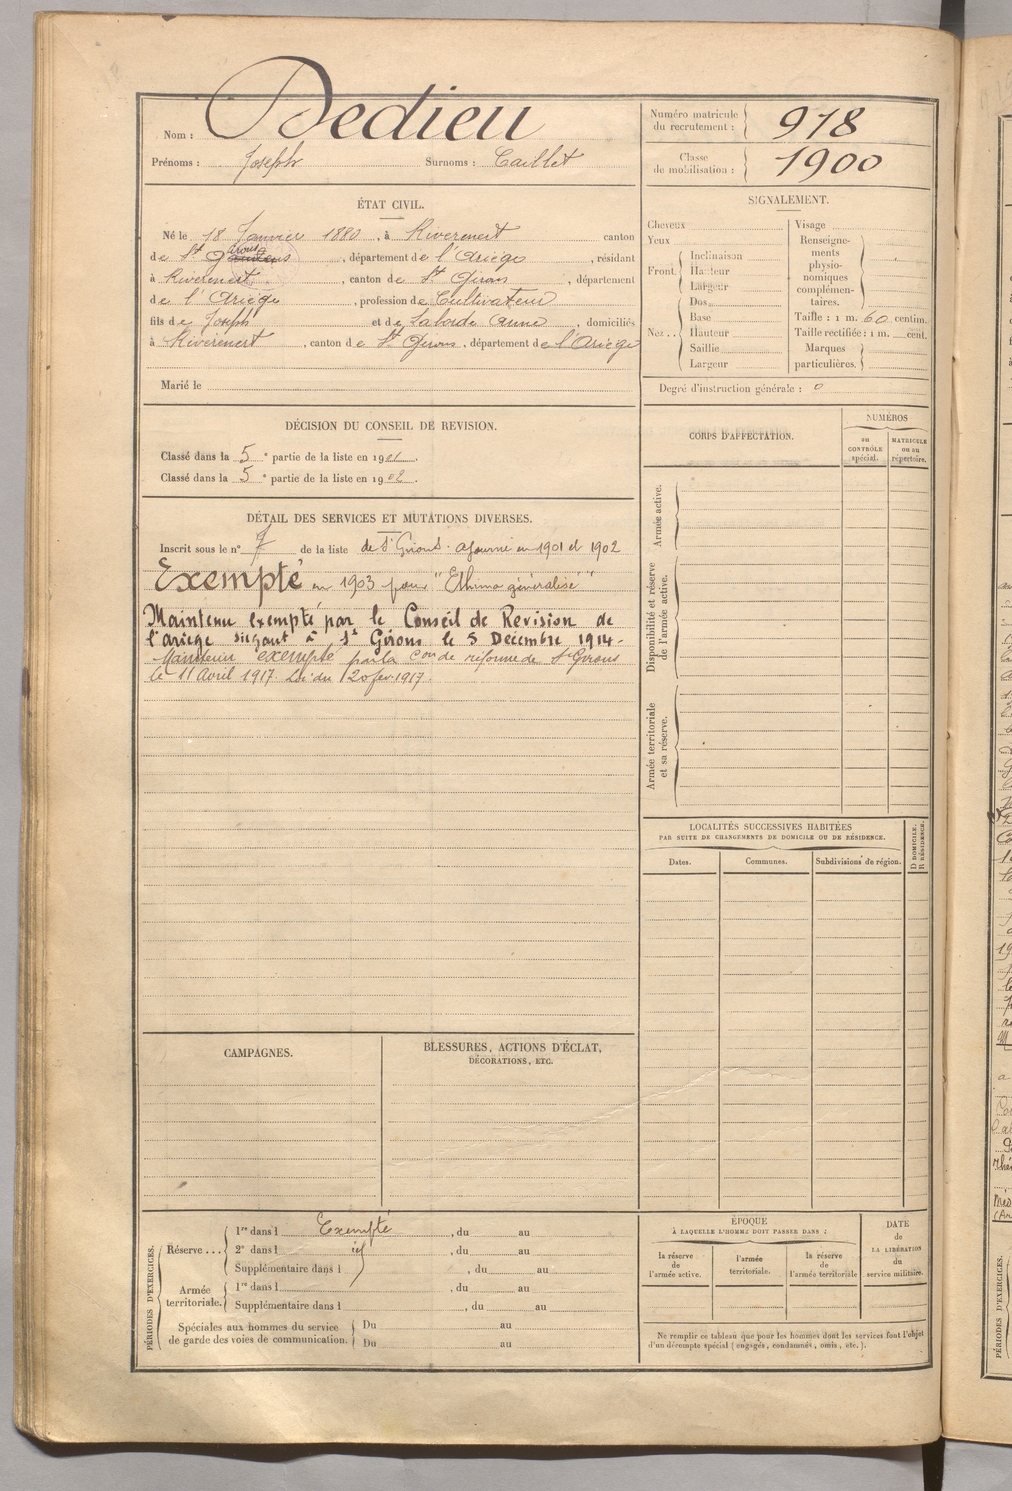 Nom : Dedieu
Prénoms : Joseph Surnoms : Caillet
Numéro matricule du recrutement : 918
Classe de mobilisation : 1900
ÉTAT CIVIL.
Né le 18 Janvier 1880, à Rivèrenert canton
de St Gaudens Girons, département de l'Ariège, résidant
à Rivèrenert, canton de St Girons, département
de l'Ariège, profession de Cultivateur
fils de Joseph et de Laborde Anne, domiciliés
à Rivèrenert, canton de St Girons, département de l'Ariège
Marié le
SIGNALEMENT.
Cheveux
Yeux
Front. Inclinaison
Hauteur
Largeur
Nez .. Dos
Base
Hauteur
Saillie
Largeur
Visage
Renseigne-
ments
physio-
nomiques
complémen-
taires.
Taille : 1 m. 60 centim.
Taille rectifiée : 1 m. cent.
Marques
particulières.
Degré d'instruction générale : 0
DÉCISION DU CONSEIL DE REVISION.
Classé dans la 5e partie de la liste en 1901.
Classé dans la 5e partie de la liste en 1902.
DÉTAIL DES SERVICES ET MUTATIONS DIVERSES.
Inscrit sous le n° 7 de la liste de St Girons. ajourné en 1901 et 1902
Exempté en 1903 pour "Ethima généralisé"
Maintenu exempté par le Conseil de Revision de
l'ariège siégeant à St Girons le 5 Décembre 1914-
Maintenu exempté par la Con de réforme de St Girons
le 11 Avril 1917. Loi du 20 fev 1917.
CORPS D'AFFECTATION.
NUMÉROS
au
CONTRÔLE
spécial.
MATRICULE
ou au
répertoire.
Armée active.
Disponibilité et réserve
de l'armée active.
Armée territoriale
et sa réserve.
LOCALITÉS SUCCESSIVES HABITÉES
PAR SUITE DE CHANGEMENTS DE DOMICILE OU DE RÉSIDENCE.
Dates. Communes. Subdivisions de région.
D DOMICILE.
R RÉSIDENCE.
CAMPAGNES.
BLESSURES, ACTIONS D'ÉCLAT,
DÉCORATIONS, ETC.
PÉRIODES D'EXERCICES.
Réserve ...
1re dans l Exempté, du au
2e dans l , du au
Supplémentaire dans l , du au
Armée
territoriale.
1re dans l , du au
Supplémentaire dans l , du au
Spéciales aux hommes du service
de garde des voies de communication.
Du au
Du au
ÉPOQUE
À LAQUELLE L'HOMME DOIT PASSER DANS :
la réserve
de
l'armée active.
l'armée
territoriale.
la réserve
de
l'armée territoriale
DATE
de
LA LIBÉRATION
du
service militaire.
Ne remplir ce tableau que pour les hommes dont les services font l'objet
d'un décompte spécial (engagés, condamnés, omis, etc.).
PÉRIODES D'EXERCICES.